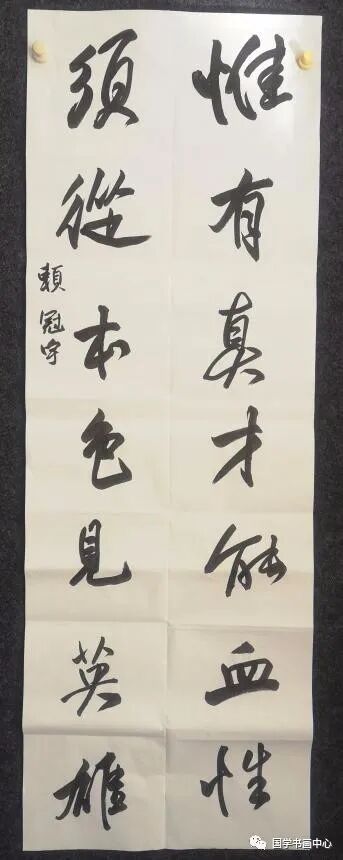 惟有真才能血性
須從本色見英雄
賴冠宇
国学书画中心